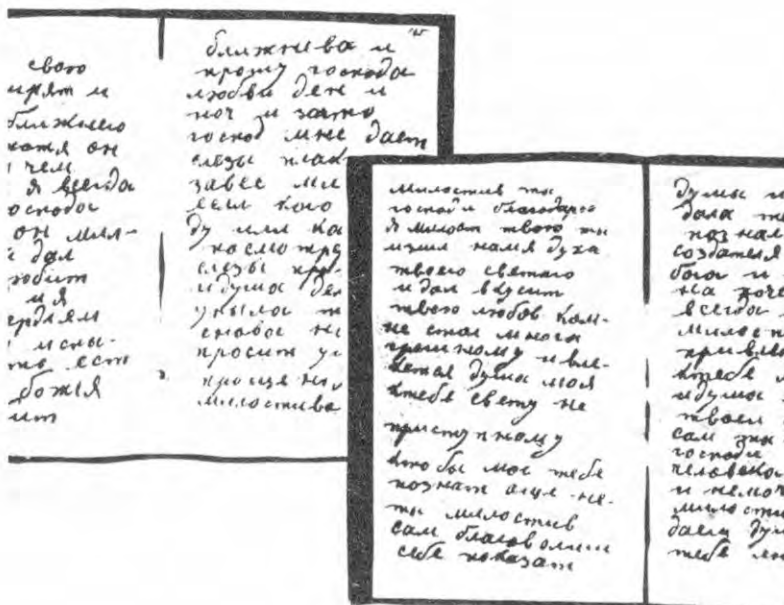 свою
ирят и
ближнего
хотя он
чем
я всегда
оспода
он мил-
дал
юбит
ия
ердием
и испы-
то ест
божия
ит
ближнева и
прошу господа
любви ден и
ноч и затко
господ мне дает
слезы плак
завес ми
если кого
ду или ка
посмотрю
слезы про
идуша дел
уныла т
снова не
просит у
проще ни
милостива
милостив ты
господи благодарю
я милост твою ты
излил намя духа
твоего святаго
идал вкусит
твою любов ком-
не стол многа
грешному и вле-
кется душа моя
ктебе свету не
приступному
кто бы мог тебе
познат аще не-
ты милостив
сам благоволил
себе показат
душы
дала т
познал
создателя
бога и
на хоче
всегда
милост
привле
ктебе
идуша
твоея
сам зн
господи
человека
и немоч
милости
даеш душ
тебе